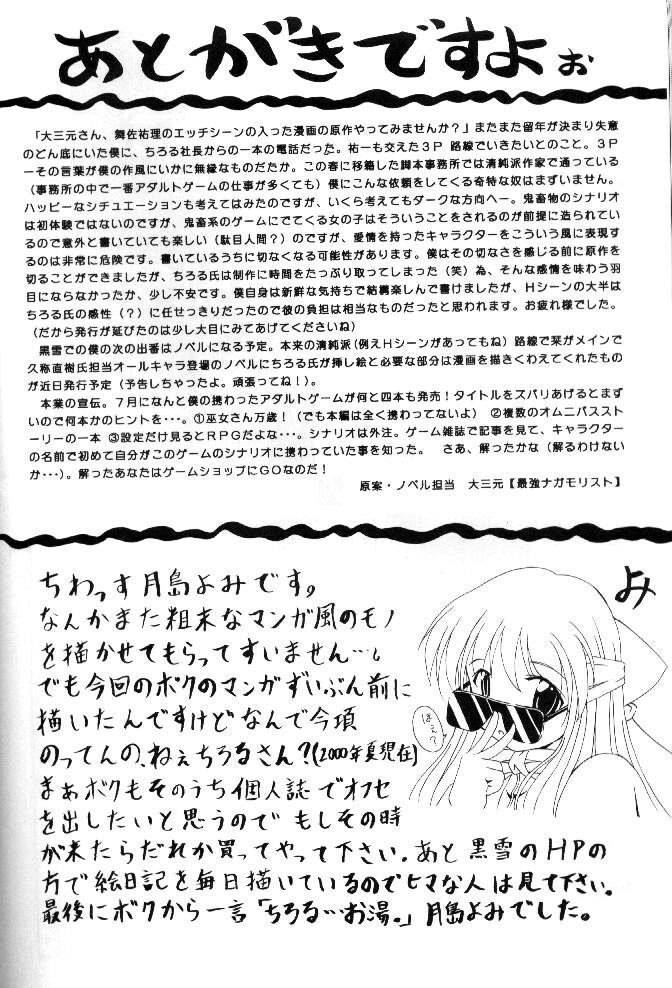 あとがきですよぉ
「大三元さん、舞佐祐理のエッチシーンの入った漫画の原作やってみませんか？」またまた留年が決まり失意
のどん底にいた僕に、ちろる社長からの一本の電話だった。祐一も交えた３Ｐ 路線でいきたいとのこと。３Ｐ
ーその言葉が僕の作風にいかに無縁なものだたか。この春に移籍した脚本事務所では清純派作家で通っている
（事務所の中で一番アダルトゲームの仕事が多くても）僕にこんな依頼をしてくる奇特な奴はまずいません。
ハッピーなシチュエーションも考えてはみたのですが、いくら考えてもダークな方向へー。鬼畜物のシナリオ
は初体験ではないのですが、鬼畜系のゲームにでてくる女の子はそういうことをされるのが前提に造られてい
るので意外と書いていても楽しい（駄目人間？）のですが、愛情を持ったキャラクターをこういう風に表現す
るのは非常に危険です。書いているうちに切なくなる可能性があります。僕はその切なさを感じる前に原作を
切ることができましたが、ちろる氏は制作に時間をたっぷり取ってしまった（笑）為、そんな感情を味わう羽
目にならなかったか、少し不安です。僕自身は新鮮な気持ちで結構楽しんで書けましたが、Ｈシーンの大半は
ちろる氏の感性（？）に任せっきりだったので彼の負担は相当なものだったと思われます。お疲れ様でした。
（だから発行が延びたのは少し大目にみてあげてくださいね）
黒雪での僕の次の出番はノベルになる予定。本来の清純派（例えＨシーンがあってもね）路線で栞がメインで
久弥直樹氏担当オールキャラ登場のノベルにちろる氏が挿し絵と必要な部分は漫画を描きくわえてくれたもの
が近日発行予定（予告しちゃったよ。頑張ってね！）。
本業の宣伝。７月になんと僕の携わったアダルトゲームが何と四本も発売！タイトルをズバリあげるとまず
いので何本かのヒントを･･･。①巫女さん万歳！（でも本編は全く携わってないよ） ②複数のオムニバスス
トーリーの一本 ③設定だけ見るとＲＰＧだよな･･･。シナリオは外注。ゲーム雑誌で記事を見て、キャラクター
の名前で初めて自分がこのゲームのシナリオに携わっていた事を知った。 さあ、解ったかな（解るわけない
か･･･）。解ったあなたはゲームショップにＧＯなのだ！
原案・ノベル担当 大三元【最強ナガモリスト】
ちわっす月島よみです。
なんかまた粗末なマンガ風のモノ
を描かせてもらってすいません…。
でも今回のボクのマンガずいぶん前に
描いたんですけどなんで今頃
のってんの、ねぇちろるさん？(2000年夏現在)
まぁボクもそのうち個人誌でオフセ
を出したいと思うので もしその時
が来たらだれか買ってやって下さい。あと 黒雪のＨＰの
方で絵日記を毎日描いているのでヒマな人は見て下さい。
最後にボクから一言「ちろる…お湯。」月島よみでした。
よみ
ほえ？